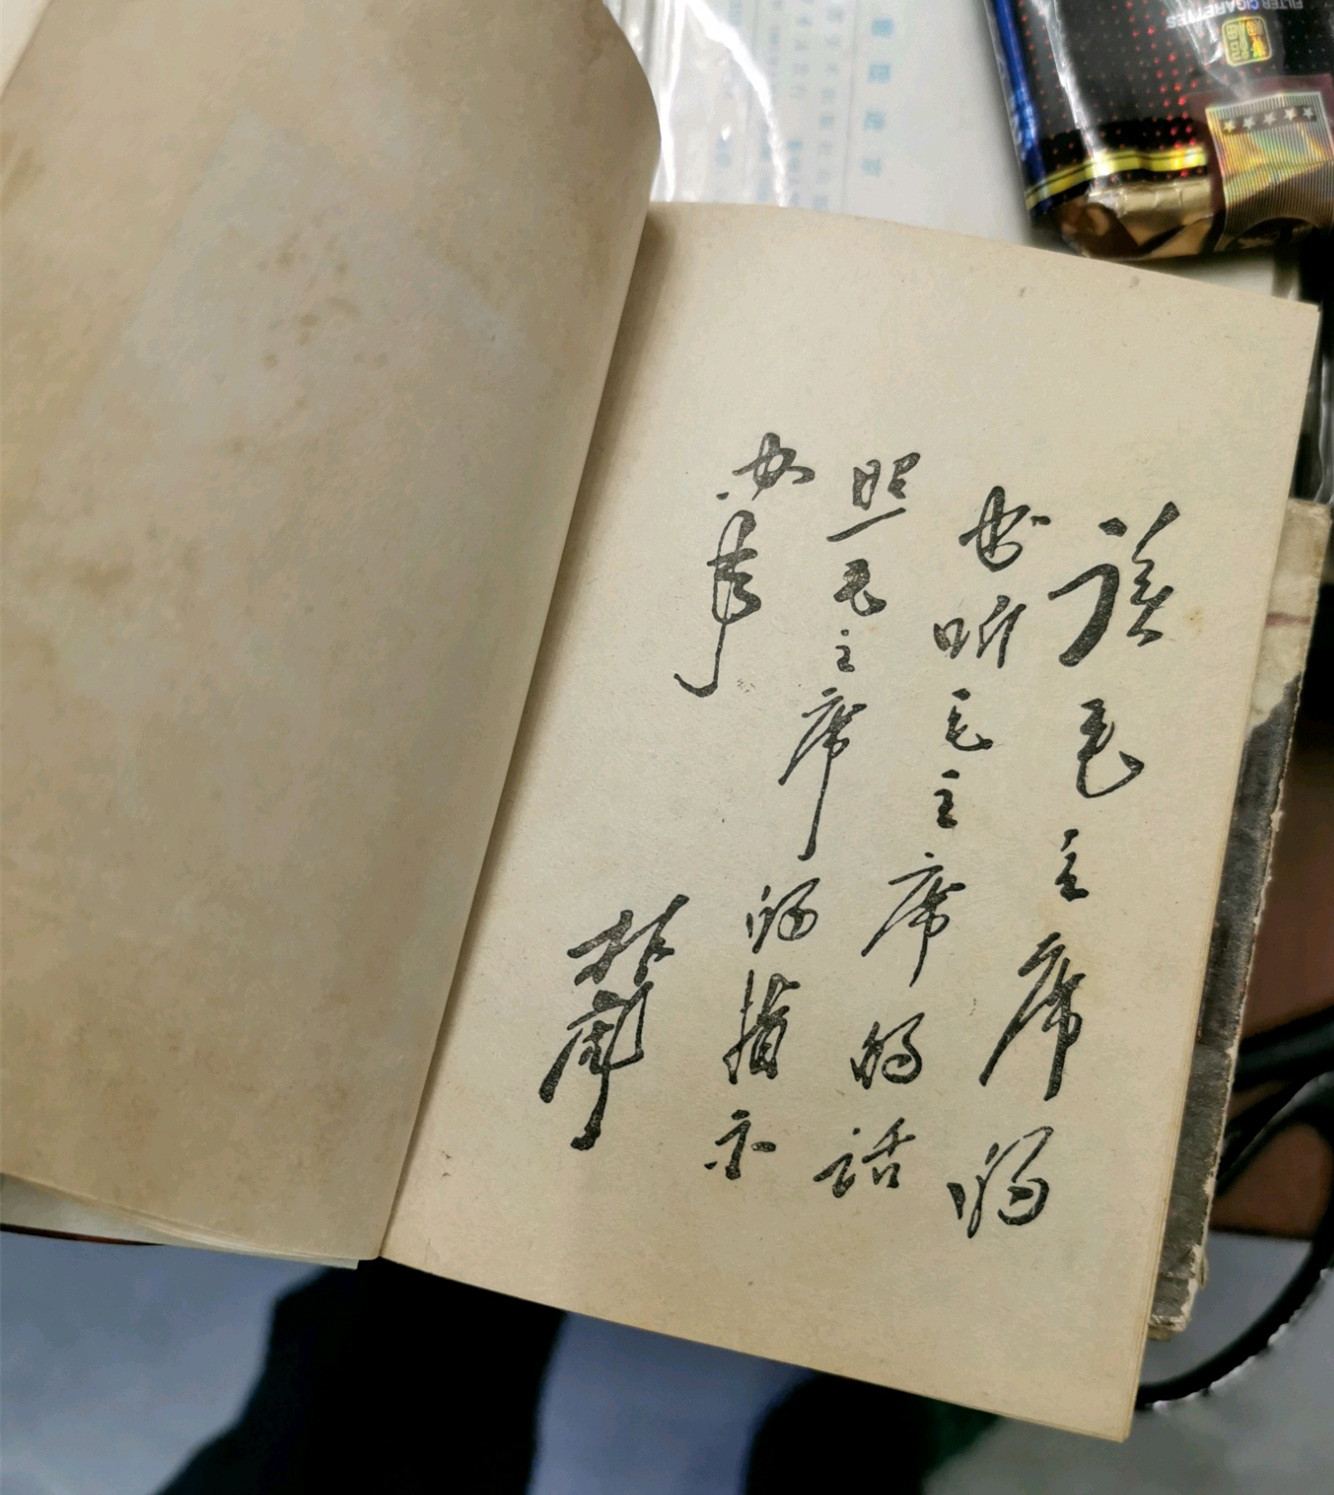 读毛主席的
书听毛主席的话
照毛主席的指示
办事
林彪
FILTER CIGARETTES